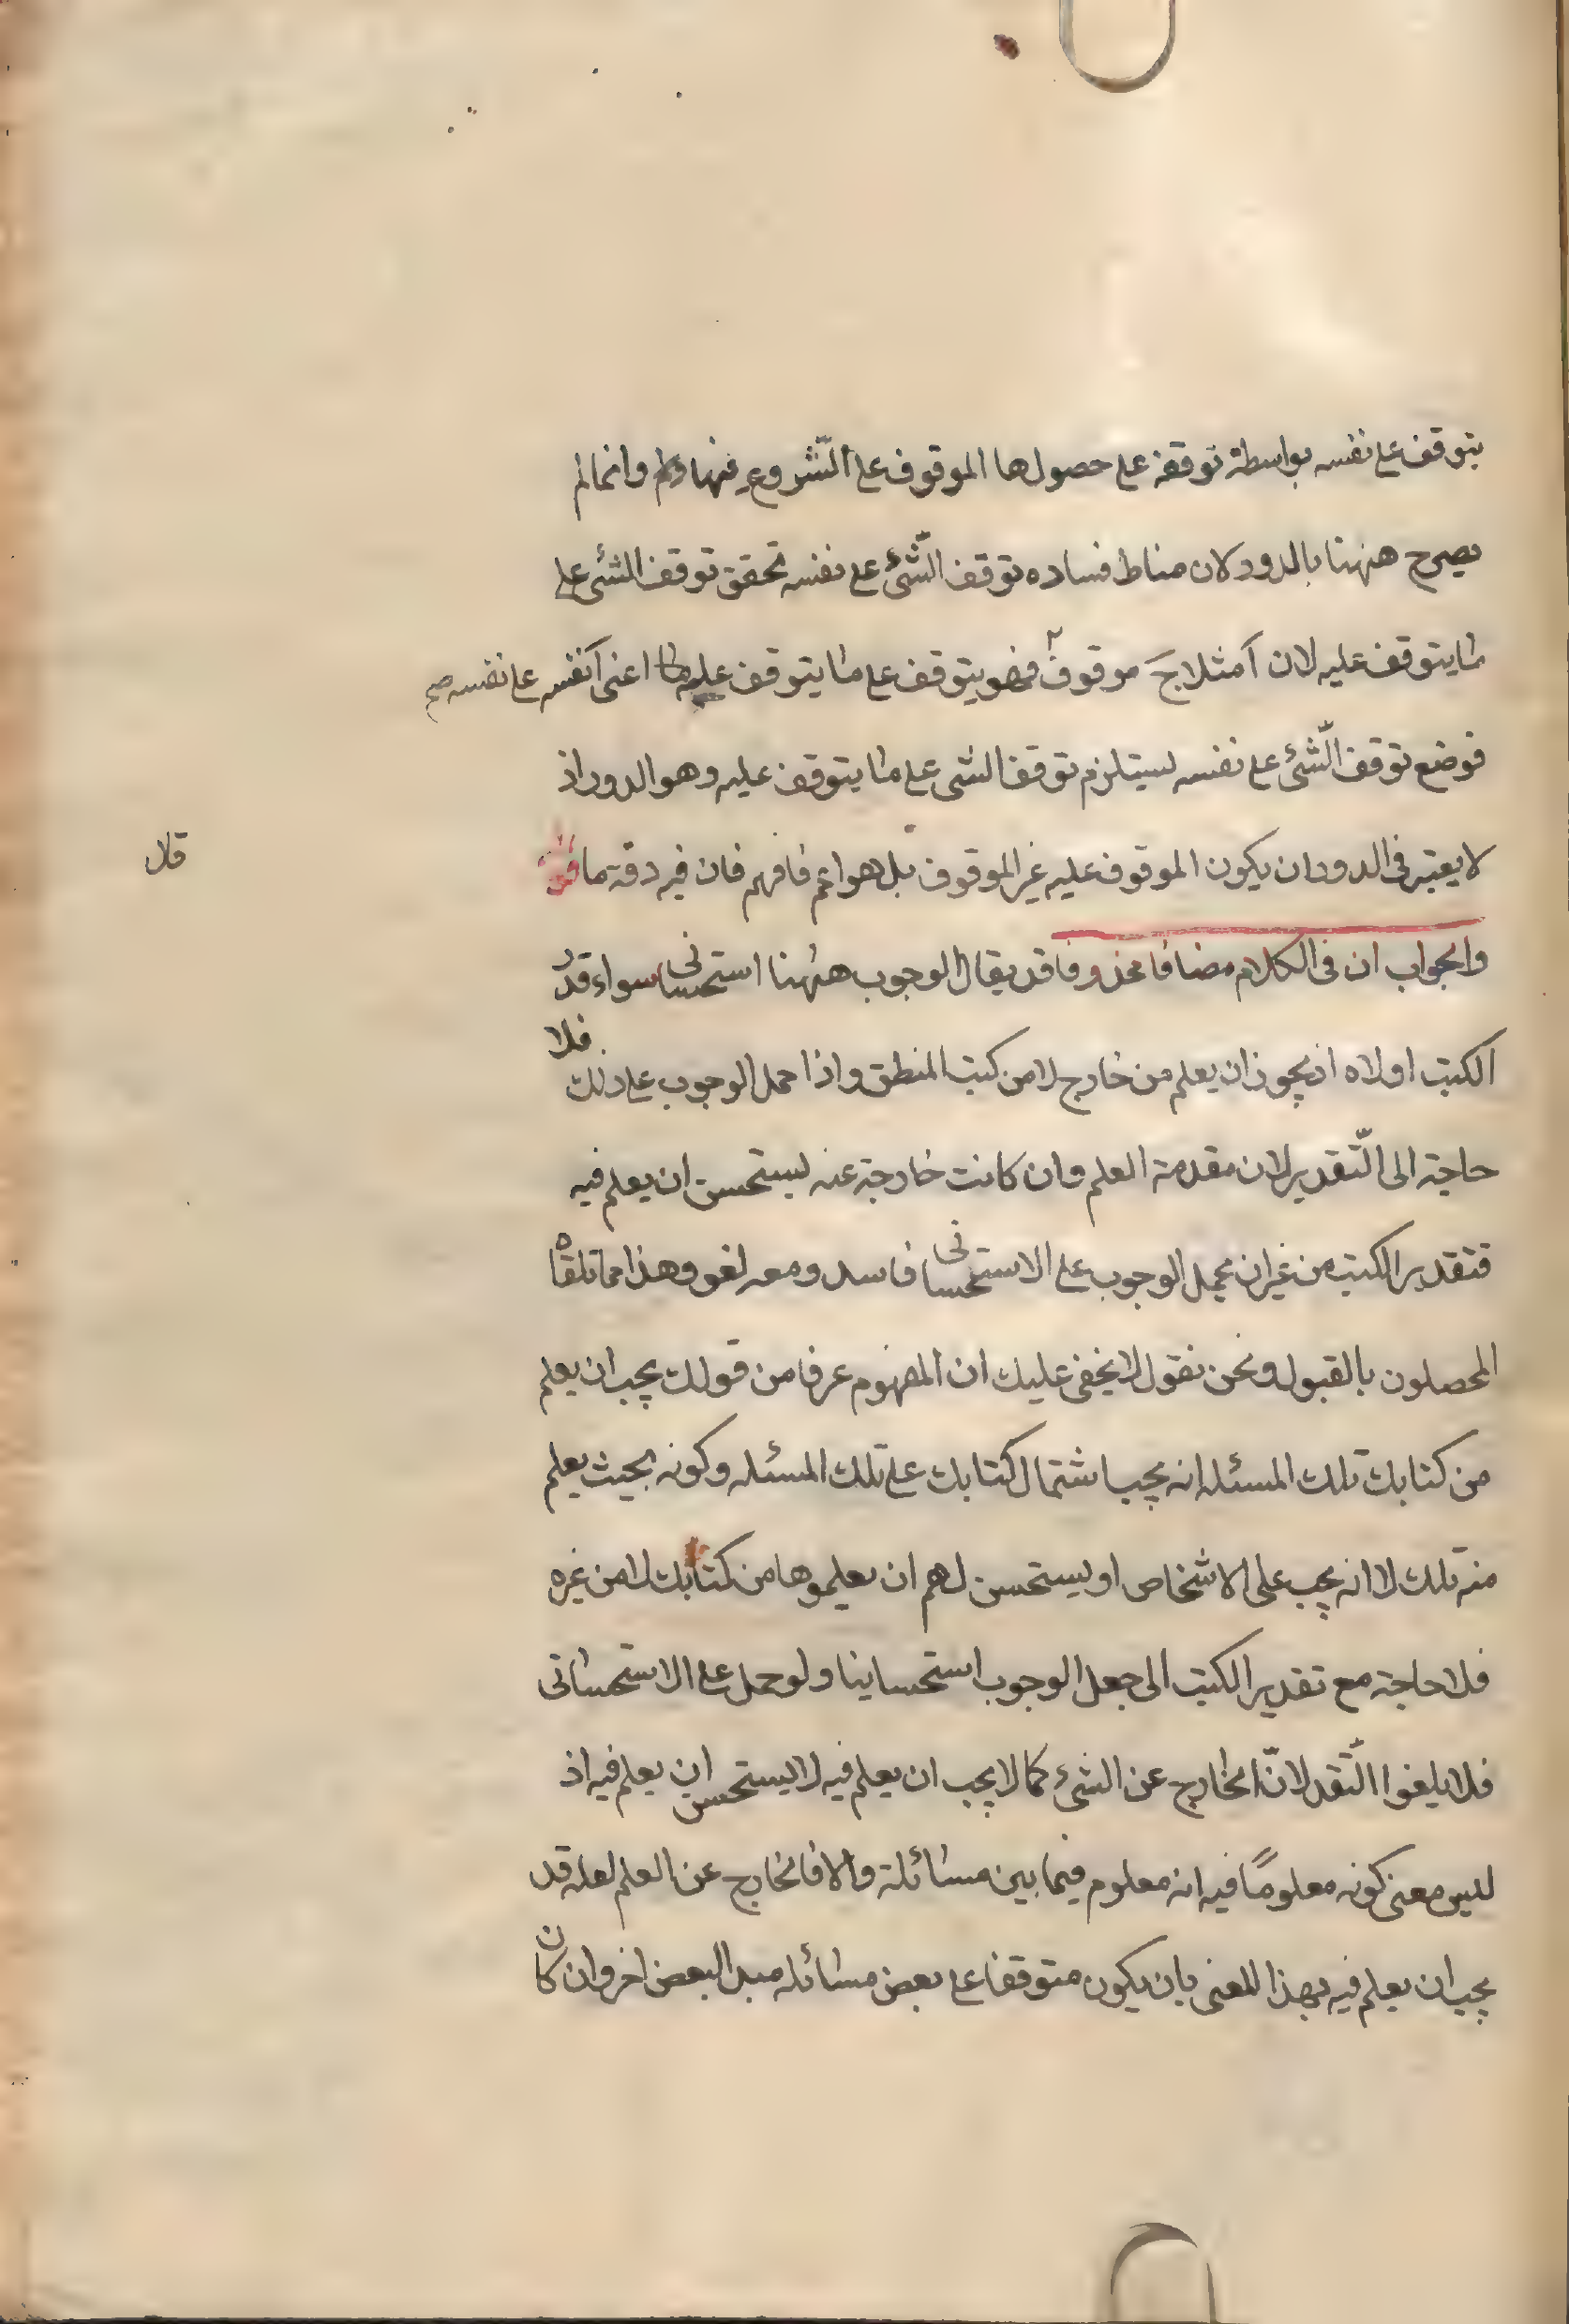 يتوقف على نفسه بواسطة توقفه على حصولها الموقوف على الشّروع فيها وانما لم
يصرح ههنا بالدور لان مناط فساده توقف الشّئ على نفسه تحقق توقف الشئ على
ما يتوقف عليه لان آ مثلا ج موقوف فهو يتوقف على ما يتوقف عليه اعنى آ نفسه على نفسه صح
فوضع توقف الشّئ على نفسه يستلزم توقف الشئ على ما يتوقف عليه وهو الدور اذ
لا يعتبر فى الدور ان يكون الموقوف عليه غير الموقوف بل هو اعم فافهم فان فيه دقة ما
قال
والجواب ان فى الكلام مضافا محذوفا قد يقال الوجوب ههنا استحسانى سواء قدر
الكتب اولاه اذ يجوز ان يعلم من خارج لا من كتب المنطق واذا حمل الوجوب على ذلك فلا
حاجة الى التّقدير لان مقدمة العلم وان كانت خارجة عنه يستحسن ان يعلم فيه
فتقدير الكتب من غير ان يحمل الوجوب على الاستحسانى فاسد ومعه لغو وهذا مما تلقاه
المحصلون بالقبول ونحن نقول لا يخفى عليك ان المفهوم عرفا من قولك يجب ان يعلم
من كتابك تلك المسئله انه يجب اشتمال كتابك على تلك المسئله وكونه بحيث يعلم
منه تلك لا انه يجب على الاشخاص او يستحسن لهم ان يعلموها من كتابك لا من غيره
فلا حاجة مع تقدير الكتب الى جعل الوجوب استحسانيا ولو حمل على الاستحسانى
فلا يلغوا التّقدير لانّ الخارج عن الشئ كما لا يجب ان يعلم فيه لا يستحسن ان يعلم فيه اذ
ليس معنى كونه معلومًا فيه انه معلوم فيما بين مسائلة والا فالخارج عن العلم لعله قد
يجب ان يعلم فيه بهذا المعنى بان يكون متوقفا على بعض مسائله مبدا لبعض اخر وان كان